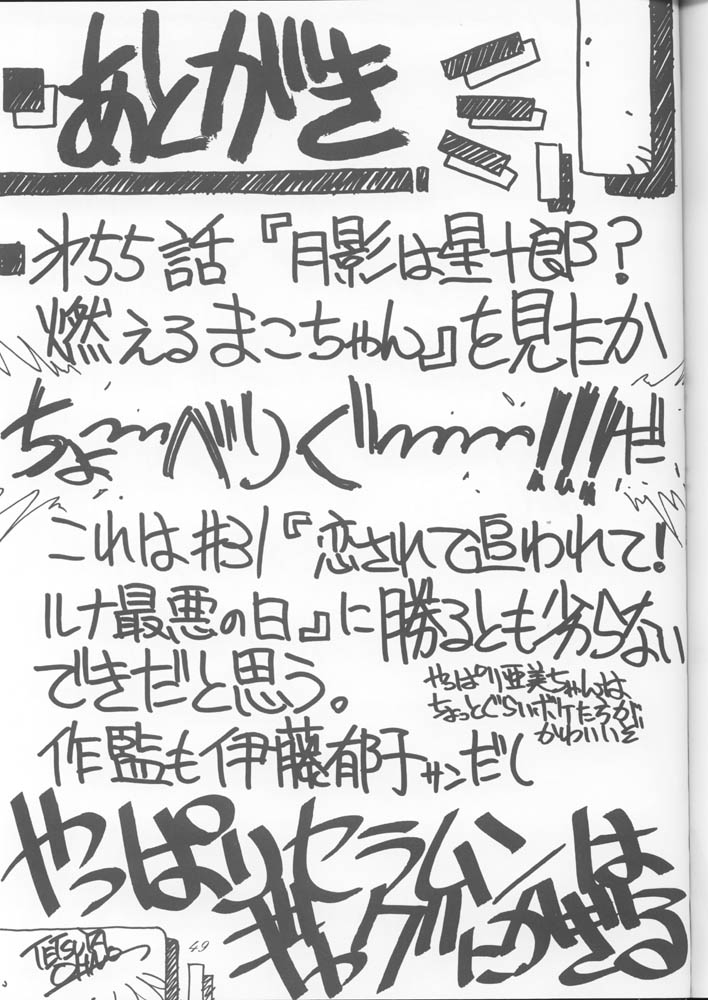 あとがき
第55話『月影は星十郎？
燃えるまこちゃん』を見たか
ちょ〜〜べりぐ〜〜〜!!!だ
これは#31『恋されて追われて！
ルナ最悪の日』に勝るとも劣らない
できだと思う。
やっぱり亜美ちゃんは
ちょっとぐらいボケたろが
かわいいぞ
作監も伊藤郁子サンだし
やっぱりセラムンは
ギャグにかぎる
TETSUYA
49